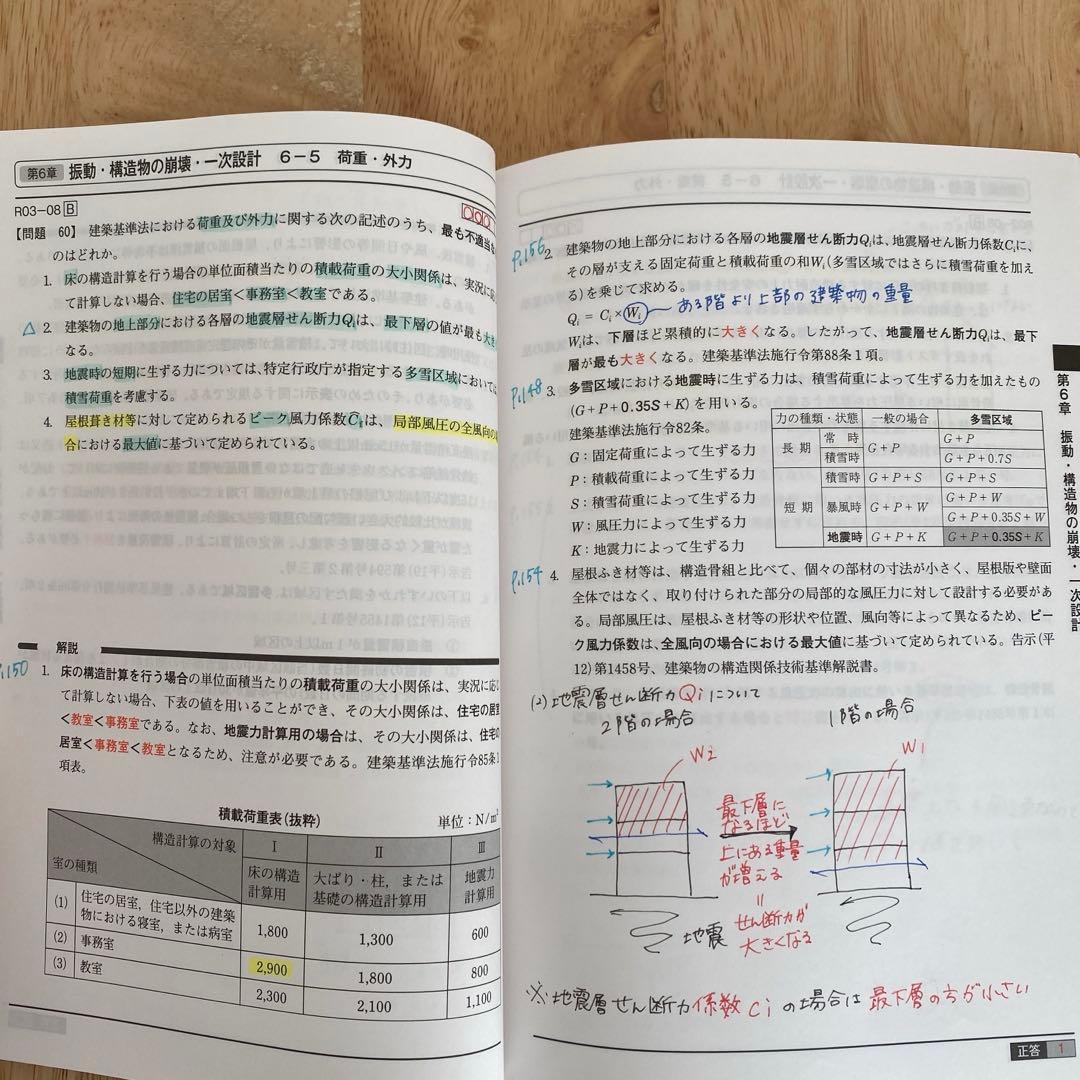 第6章 振動・構造物の崩壊・一次設計 6－5 荷重・外力
R03－08 B
【問題 60】 建築基準法における荷重及び外力に関する次の記述のうち、最も不適当な
のはどれか。
1. 床の構造計算を行う場合の単位面積当たりの積載荷重の大小関係は、実況に応じ
て計算しない場合、住宅の居室＜事務室＜教室である。
△ 2. 建築物の地上部分における各層の地震層せん断力Qiは、最下層の値が最も大きく
なる。
3. 地震時の短期に生ずる力については、特定行政庁が指定する多雪区域においては、
積雪荷重を考慮する。
4. 屋根葺き材等に対して定められるピーク風力係数Ĉfは、局部風圧の全風向の場
合における最大値に基づいて定められている。
解説
P.150
1. 床の構造計算を行う場合の単位面積当たりの積載荷重の大小関係は、実況に応じ
て計算しない場合、下表の値を用いることができ、その大小関係は、住宅の居室
＜教室＜事務室である。なお、地震力計算用の場合は、その大小関係は、住宅の
居室＜事務室＜教室となるため、注意が必要である。建築基準法施行令85条1
項表。
積載荷重表(抜粋) 単位：N/m²
構造計算の対象 Ⅰ Ⅱ Ⅲ
室の種類 床の構造計算用 大ばり・柱，または基礎の構造計算用 地震力計算用
(1) 住宅の居室，住宅以外の建築物における寝室，または病室 1,800 1,300 600
(2) 事務室 2,900 1,800 800
(3) 教室 2,300 2,100 1,100
P.156
2. 建築物の地上部分における各層の地震層せん断力Qiは、地震層せん断力係数Ciに、
その層が支える固定荷重と積載荷重の和Wi(多雪区域ではさらに積雪荷重を加え
る)を乗じて求める。
Qi = Ci×Wi ある階より上部の建築物の重量
Wiは、下層ほど累積的に大きくなる。したがって、地震層せん断力Qiは、最下
層が最も大きくなる。建築基準法施行令第88条1項。
P.148
3. 多雪区域における地震時に生ずる力は、積雪荷重によって生ずる力を加えたもの
(G+P+0.35S+K)を用いる。
建築基準法施行令82条。
G：固定荷重によって生ずる力
P：積載荷重によって生ずる力
S：積雪荷重によって生ずる力
W：風圧力によって生ずる力
K：地震力によって生ずる力
力の種類・状態 一般の場合 多雪区域
長期 常時 G+P G+P
積雪時 G+P+0.7S
短期 積雪時 G+P+S G+P+S
暴風時 G+P+W G+P+W
G+P+0.35S+W
地震時 G+P+K G+P+0.35S+K
P.154
4. 屋根ふき材等は、構造骨組と比べて、個々の部材の寸法が小さく、屋根版や壁面
全体ではなく、取り付けられた部分の局部的な風圧力に対して設計する必要があ
る。局部風圧は、屋根ふき材等の形状や位置、風向等によって異なるため、ピー
ク風力係数は、全風向の場合における最大値に基づいて定められている。告示(平
12)第1458号、建築物の構造関係技術基準解説書。
(2)地震層せん断力Qiについて
2階の場合 1階の場合
W2
W1
最下層に
なるほど
上にある重量
が増える
＝
せん断力が
大きくなる
地震
※地震層せん断力係数Ciの場合は最下層の方が小さい
第6章 振動・構造物の崩壊・一次設計
正答 1